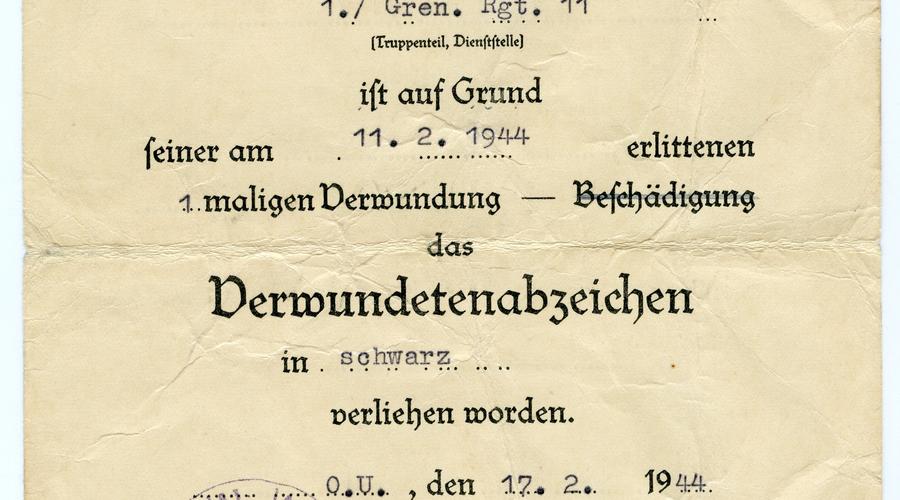 1./ Gren. Rgt. 11
(Truppenteil, Dienststelle)
ist auf Grund
seiner am 11. 2. 1944 erlittenen
1.maligen Verwundung — Beschädigung
das
Verwundetenabzeichen
in schwarz
verliehen worden.
O.U. , den 17. 2. 1944.